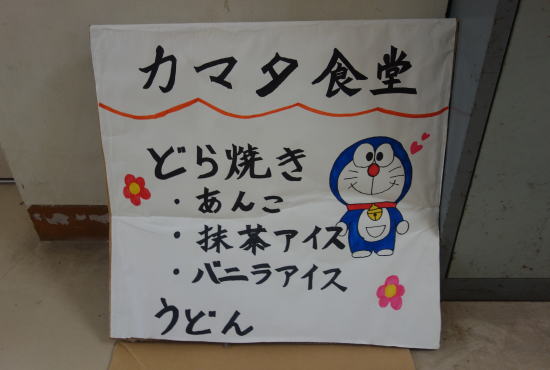 カマタ食堂
どら焼き
・あんこ
・抹茶アイス
・バニラアイス
うどん